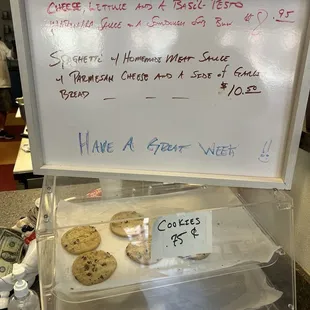 Cheese Lettuce and a Basil-Pesto
Sauce on a Bun .95
Spaghetti w/ Homemade Meat Sauce
w/ Parmesan Cheese and a Side of Garlic
Bread $10.50
Have A Great Week !!
Cookies
.75¢